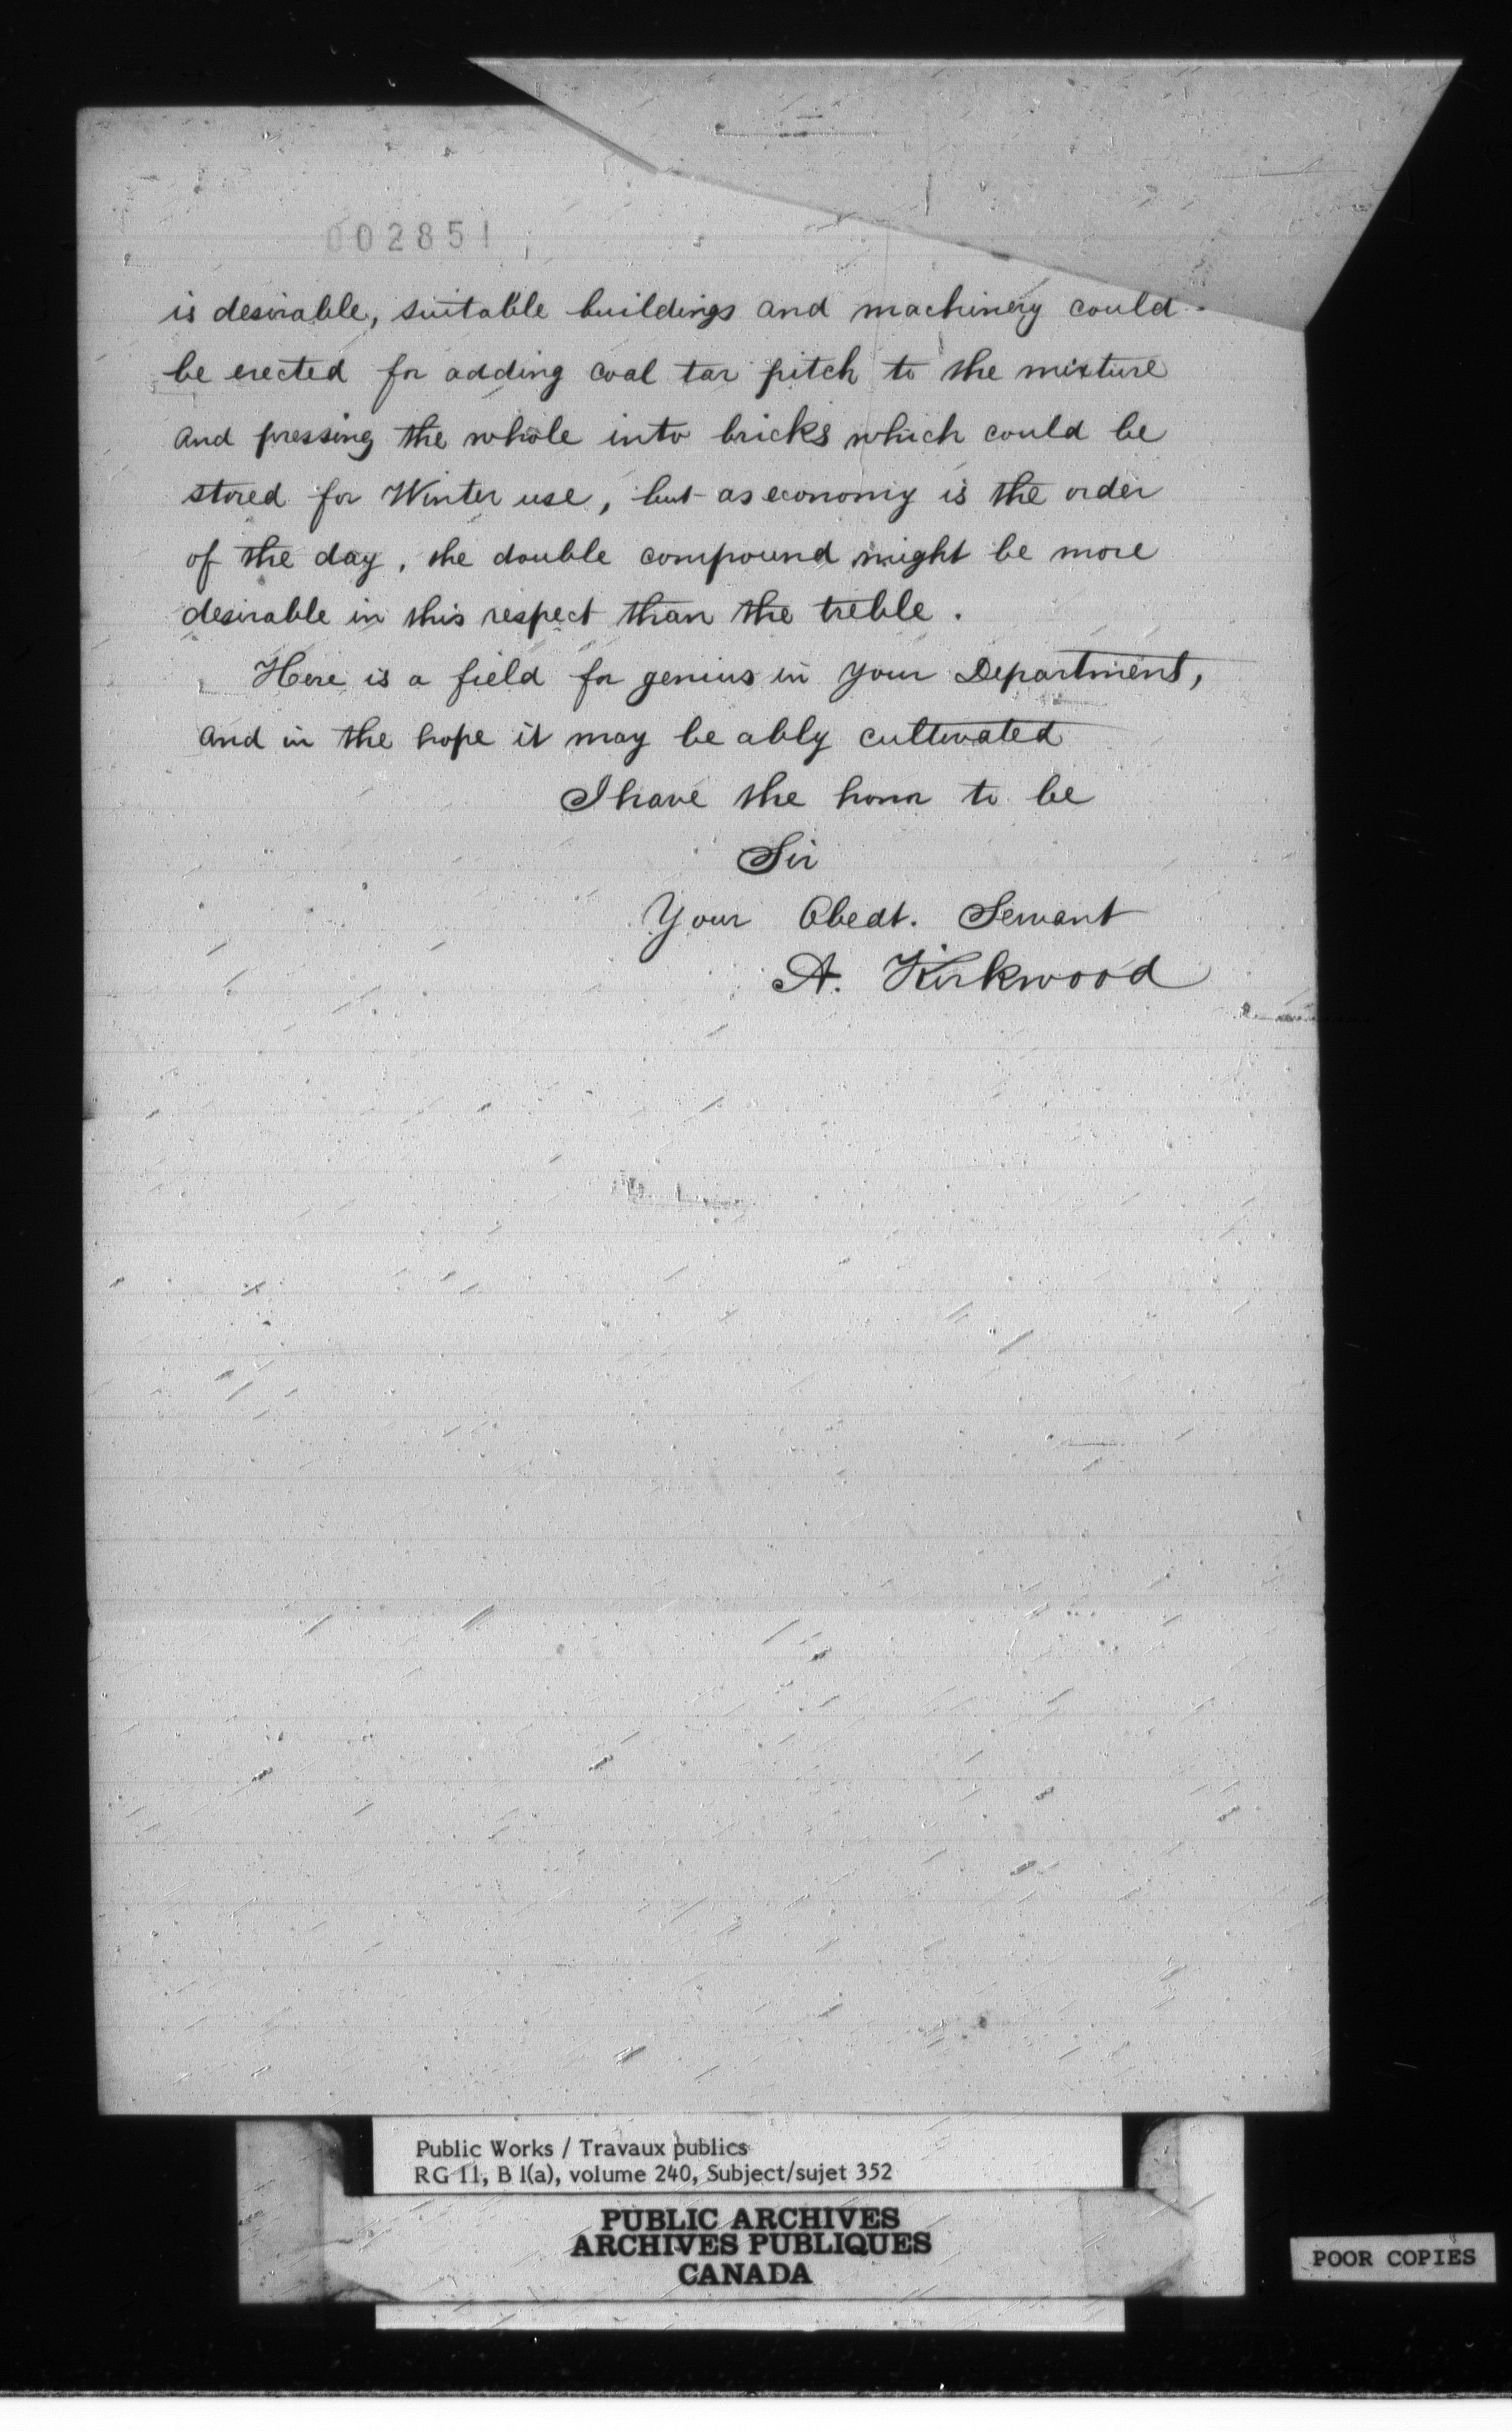 002851
is desirable, suitable buildings and machinery could
be erected for adding coal tar pitch to the mixture
and pressing the whole into bricks which could be
stored for Winter use, but as economy is the order
of the day, the double compound might be more
desirable in this respect than the treble.
Here is a field for genius in your Department,
and in the hope it may be ably cultivated
I have the honor to be
Sir
Your Obedt. Servant
A. Kirkwood
Public Works / Travaux publics
RG 11, B 1(a), volume 240, Subject/sujet 352
PUBLIC ARCHIVES
ARCHIVES PUBLIQUES
CANADA
POOR COPIES